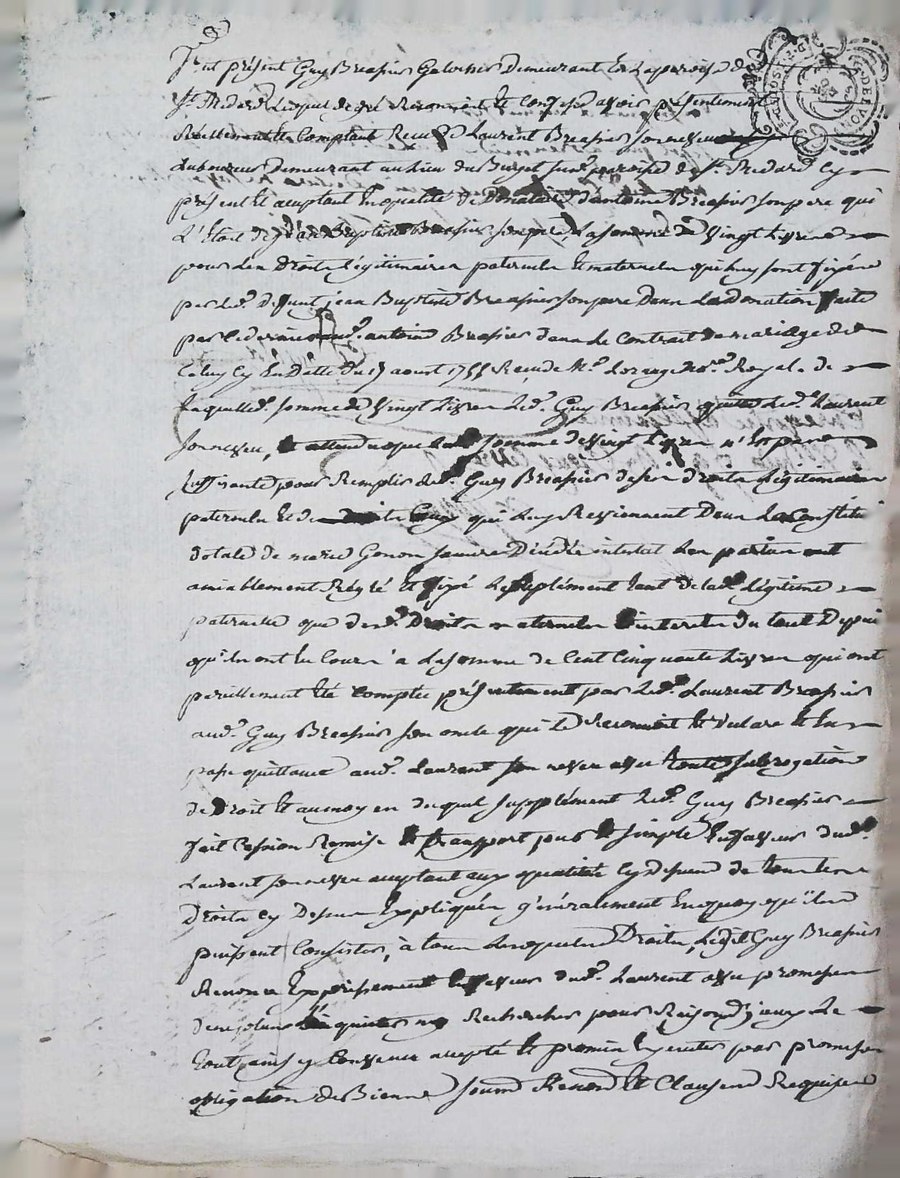 fut présent Guy Breassier Galocher demeurant en la paroisse de
St. Medard Lequel de gré Reconnoit et confesse avoir présentement
Reellement et comptant Reçu de Laurent Breassier son neveu
Laboureur demeurant au lieu du Buret susd. paroisse de St. Medard cy
présent et acceptant En qualité de Donataire d'antoine Breassier son pere qui
L'Etoit de Jean Baptiste Breassier son pere, La somme de Vingt Livres
pour Les Droits légitimaires paternels et maternels qui luy sont fixés
par led. defunt jean Baptiste Breassier son pere Dans La donation faite
par ce dernier aud. antoine Breassier dans le Contrat de mariage de
Celuy cy En Datte du aoust 1755 Reçu de Me. Royal. de
laquelle. somme de Vingt Livres Led. Guy Breassier quitte Led. Laurent
son neveu, et attendu que lad. somme de Vingt Livres n'Est pas
suffisante pour Remplir led. Guy Breassier de ses droits Légitimaires
paternels et de ceux qui Luy Reviennent Dans La Constitution
dotale de marie Gonon sa mere Décédée intestat Les parties ont
amiablement Réglé Et fixé Le supplément tant de lad. Légitime
paternelle que desd. Droits maternels et interets du tout Depuis
qu'ils ont Eu Cours a La somme de Cent Cinquante Livres qui ont
pareillement été comptés présentement par Led. Laurent Breassier
aud. Guy Breassier son oncle qui le Reconnoit et declare et En
passe quittance aud. Laurent son neveu avec toute subrogation
de Droit Et au moyen duquel supplément Led. Guy Breassier
fait Cession Remise et transport pur et simple En faveur dud.
Laurent son neveu acceptant aux qualités cy dessus de tous les
Droits cy Dessus Expliqués généralement En quoy qu'ils
puissent Consister, à tous Lesquels Droits, Ledit Guy Breassier
Renonce Expressement En faveur dud. Laurent avec promesse
de ne plus inquieter ny Rechercher pour Raison d'iceux Le
tout ainsy Convenu accepté et promis Executer par promesse
obligation de Biens soumis Renon. Et Clauses Requises